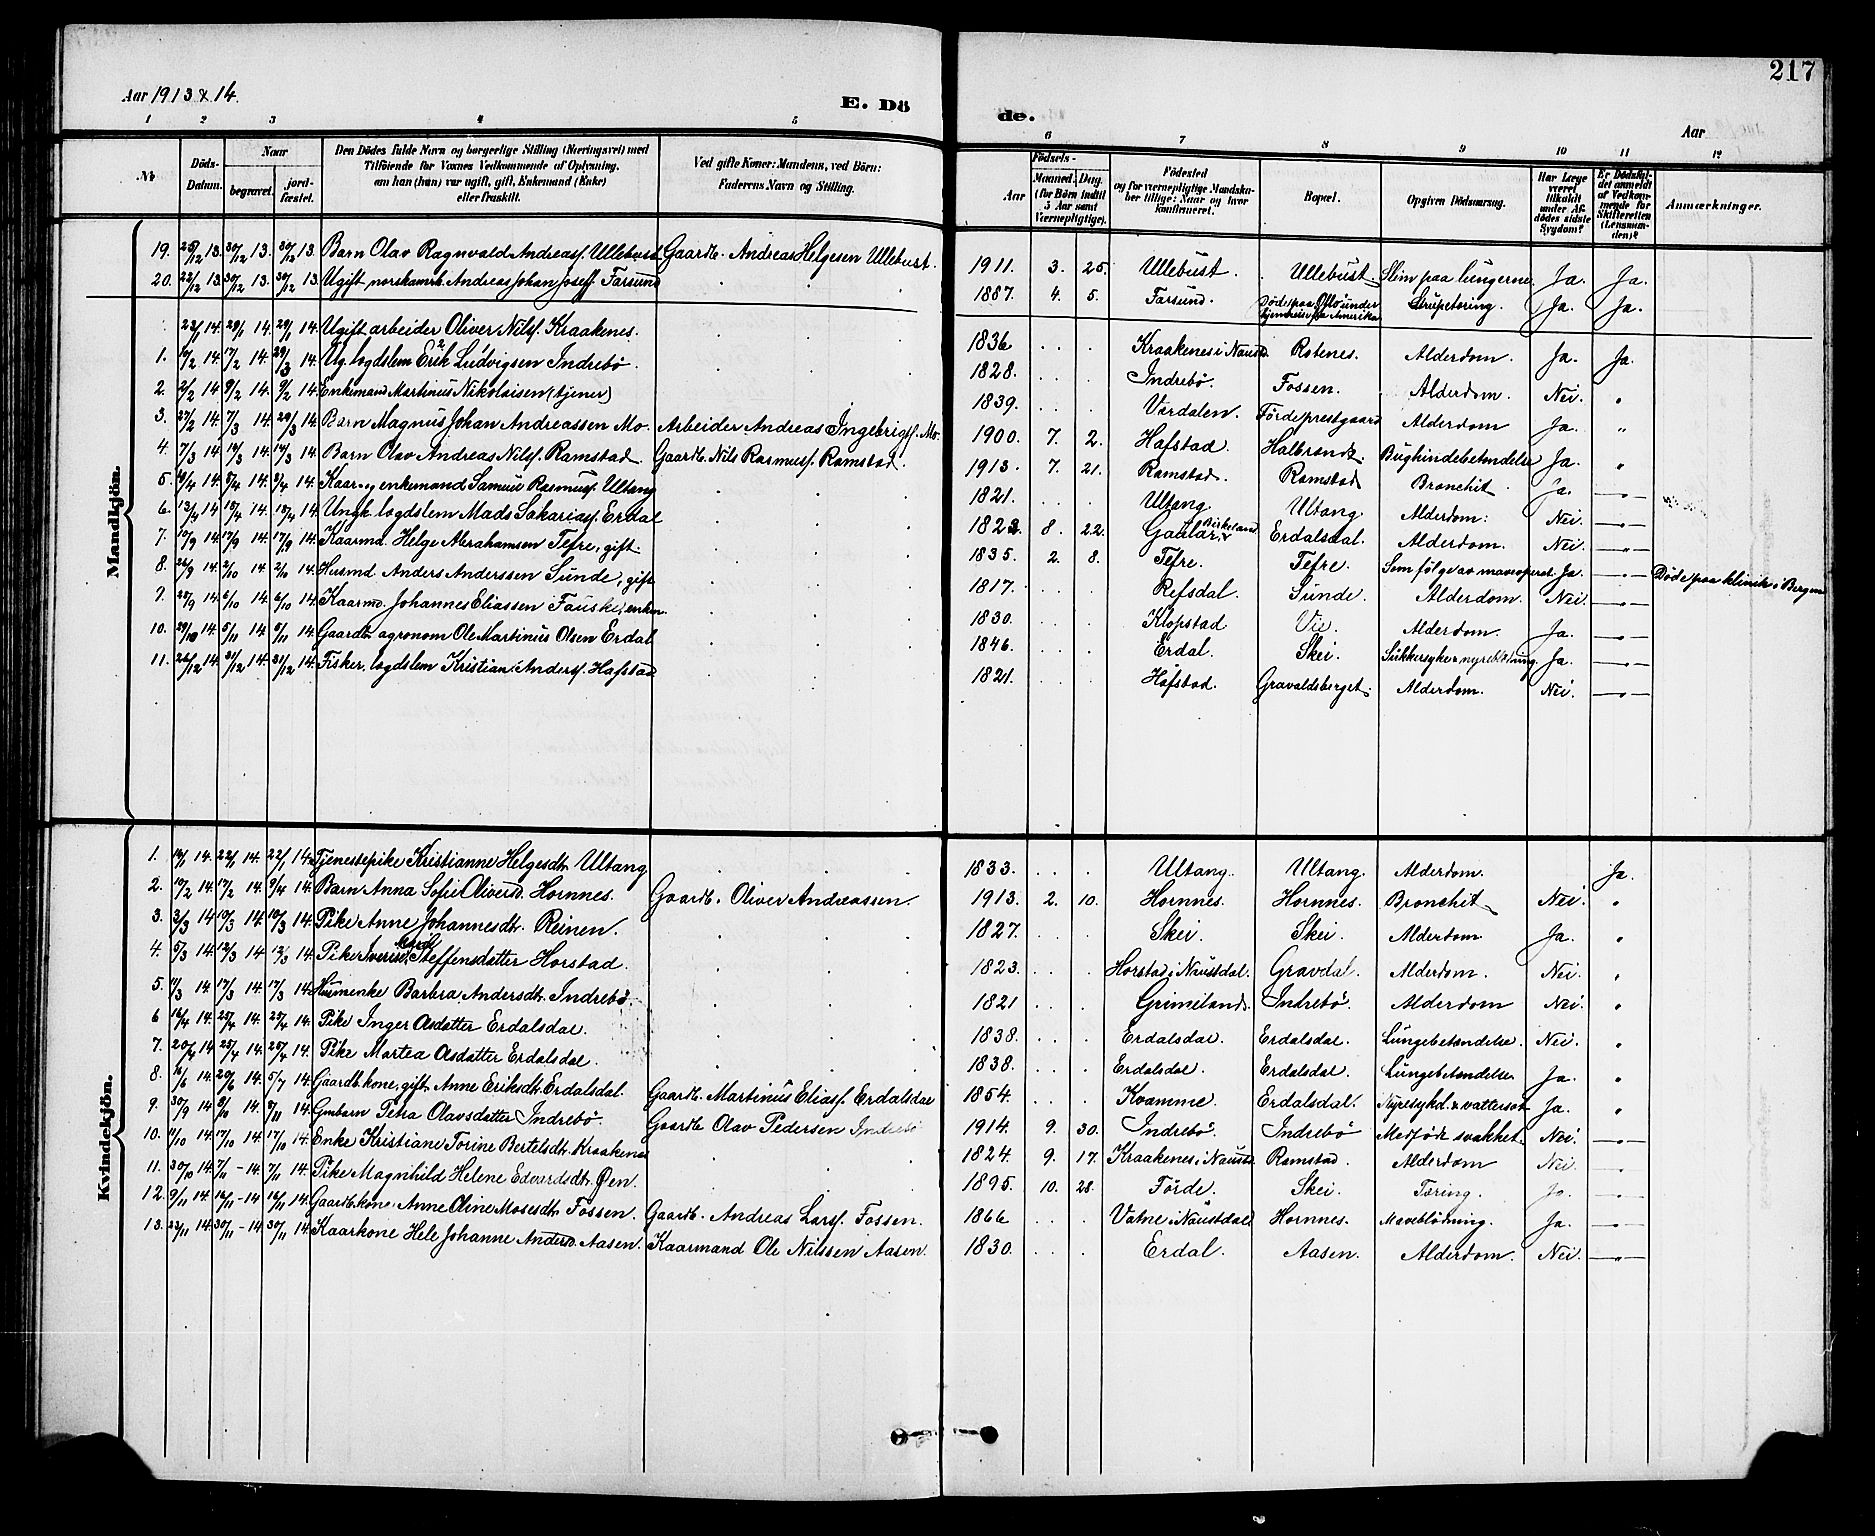 217
Aar 1913 & 14.
E. Dö
de.
Aar
1 2 3 4 5 6 7 8 9 10 11 12
No
Döds-Datum.
Naar
begravet.
jord-fæstet.
Den Dödes fulde Navn og borgerlige Stilling (Næringsvei) med
Tilföiende for Voxnes Vedkommende af Oplysning,
om han (hun) var ugift, gift, Enkemand (Enke)
eller fraskilt.
Ved gifte Koner: Mandens, ved Börn:
Faderens Navn og Stilling.
Födsels-
Aar
Maaned. Dag.
(for Börn indtil
5 Aar samt
Værnepligtige).
Födested
og for værnepligtige Mandska-
ber tillige: Naar og hvor
konfirmeret.
Bopæl.
Opgiven Dödsaarsag.
Har Læge
været
tilkaldt
under Af-
dödes sidste
Sygdom?
Er Dödsfal-
det anmeldt
af Vedkom-
mende for
Skifteretten
(Lensman-
den)?
Anmærkninger.
Mandkjön.
19. 25/12 13. 30/12 13. 30/12 13. Barn Olav Ragnvald Andreasf. Ullebust Gaardb. Andreas Helgesen Ullebust. 1911. 3. 25. Ullebust. Ullebust. Slim paa lungerne Ja. Ja.
20. 22/12 13. 30/12 13. 30/12 13. Ugift norskamrk. Andreas Johan Josefs. Farsund 1887. 4. 5. Farsund. Döde paa Oslo under hjemreise fra Amerika Strupetæring. Ja. Ja.
23/1 14. 29/1 14. 29/1 14. Ugift arbeider Oliver Nilsf. Kraakenes. 1836 Kraakenes i Naustd. Rotenes. Alderdom. Ja. Ja.
1. 10/2 14. 17/2 14. 29/3 14. Ug. lægdslem Erik Ludvigsen Indrebö. 1828. Indrebö. Fossen. Alderdom. Nei. "
2. 2/2 14 9/2 14. 9/2 14. Enkemand Martinus Nikolaisen (tjener) 1839. Vardalen. Förde prestgaard Alderdom Ja. "
3. 27/2 14. 7/3 14. 29/3 14. Barn Magnus Johan Andreassen Mo. Arbeider Andreas Ingebrigtf. Mo. 1900. 7. 2. Hafstad. Halbrendt. Bughindebetændelse Ja. "
4. 7/3 14. 14/3 14. 14/3 14. Barn Olav Andreas Nilsf. Ramstad. Gaardb. Nils Rasmusf. Ramstad. 1913. 7. 21. Ramstad. Ramstad Bronchit. Ja.
5. 14. 8/4 14. 8/4 14. Kaarm., enkemand Samuel Rasmusf. Ultang 1821. Ultang Ultang. Alderdom. Nei. — " —
6. 13/4 14 18/4 14. 18/4 14. Ungk. lægdslem Mads Sakariasf. Erdal 1823. 8. 22. Gaular, Birkeland Erdalsdal. Alderdom. Nei. — " —
7. 10/9 14. 17/9 14. 17/9 14. Kaarmd. Helge Abrahamsen Tefre, gift. 1835. 2. 8. Tefre. Tefre. Som fölge av maveoperat. Ja. — " — Döde paa klinik i Bergen
8. 26/9 14. 2/10 14. 2/10 14. Husmd. Anders Anderssen Sunde, gift 1817. Refsdal. Sunde. Alderdom. Nei. — " —
9. 28/9 14. 6/10 14. 6/10 14. Kaarmd. Johannes Eliassen Fauske, enkm. 1830. Klopstad. Vie. Alderdom. Ja. — " —
10. 29/10 14. 5/11 14. 5/11 14. Gaardb. agronom Ole Martinus Olsen Erdal 1846. Erdal. Skei. Sukkersyke & nyreblödning. Ja. — " —
11. 26/12 14. 31/12 14. 31/12 14. Fisker, lægdslem Kristian Andersf. Hafstad 1821. Hafstad. Gravaldsberget. Alderdom. Nei. — " —
Kvindekjön.
1. 14/1 14. 22/1 14. 22/1 14. Tjenestepike Kristianne Helgesdt. Ultang 1833. Ultang. Ultang. Alderdom. Ja.
2. 10/2 14. 17/2 14. 9/4 14. Barn Anna Sofie Oliversd. Hornnes. Gaardb. Oliver Andreassen. 1913. 2. 10. Hornnes. Hornnes. Bronchit Nei. "
3. 3/3 14. 10/3 14. 10/3 14. Pike Anne Johannesdt. Reinen. 1827. Skei. Skei. Alderdom. Ja. "
4. 5/3 14. 12/3 14 12/3 14 Pike Steffensdatter Horstad. 1823. Horstad i Naustdal. Gravdal. Alderdom. Nei. "
5. 11/3 14. 17/3 14. 17/3 14. Husmenke Barbra Andersdt. Indrebö. 1821 Grimeland. Indrebö. Alderdom Nei. "
6 16/4 14. 25/4 14. 25/4 14. Pike Inger Asdatter Erdalsdal. 1838. Erdalsdal. Erdalsdal. Lungebetændelse. Nei. "
7. 20/4 14. 25/4 14. 25/4 14. Pike Martea Asdatter Erdalsdal. 1838. Erdalsdal. Erdalsdal. Lungebetændelse Ja. "
8. 16/6 14. 20/6 14. 5/7 14. Gaardb.kone, gift Anne Eriksdt. Erdalsdal. Gaardb. Martinus Eliasf. Erdalsdal 1854. Kvamme. Erdalsdal. Nyresykd. & vattersot Ja. "
9. 30/9 14 8/10 14. 8/11 14. Gmbarn Petra Olavsdatter Indrebö. Gaardb. Olav Pedersen Indrebö 1914. 9. 30. Indrebö. Indrebö Medfödt svakhet. Nei. — " —
10. 11/10 14. 17/10 14. 17/10 14. Enke Kristiane Torine Bertelsdt. Kraakenes 1824. 9. 17. Kraakenes i Naustd. Ramstad. Alderdom Nei. — " —
11. 30/10 14. 7/11 - 14. 7/11 14. Pike Magnhild Helene Edvardsdt. Øen. 1895. 10. 28. Förde. Skei. Tæring. Ja. — " —
12. 9/11 14. 16/11 - 14. 16/11 14. Gaardb.kone Anne Oline Mosesdt. Fossen. Gaardb. Andreas Larsf. Fossen. 1866 Vatne i Naustdal Hornnes. Maveblödning. Ja. — " —
13. 23/11 14. 30/11 - 14. 30/11 14. Kaarkone Hele Johanne Andersd. Aasen. Kaarmand Ole Nilssen Aasen. 1830. Erdal. Aasen. Alderdom Nei. — " —